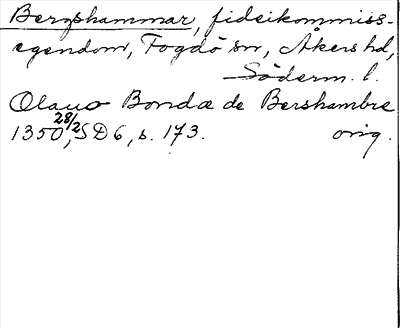 Bergshammar, fideikommiss-
egendom, Fogdö sn, Åkers hd,
Söderm. l.
Olauo Bonda de Bershambre
1350 28/2, SD 6, s. 173. orig.